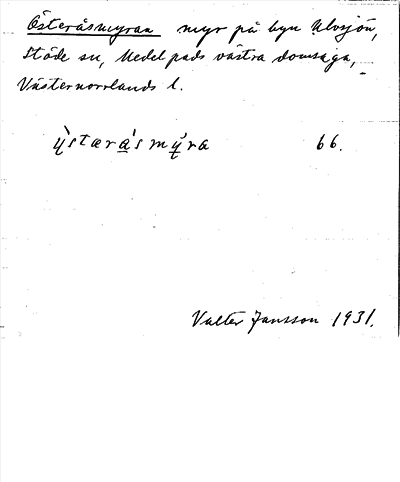 Österåsmyran myr på byn Ulvsjön,
Stöde sn, Medelpads västra domsaga,
Västernorrlands l.
ỳstæra̠'smy̠´ra 66.
Valter Jansson 1931.